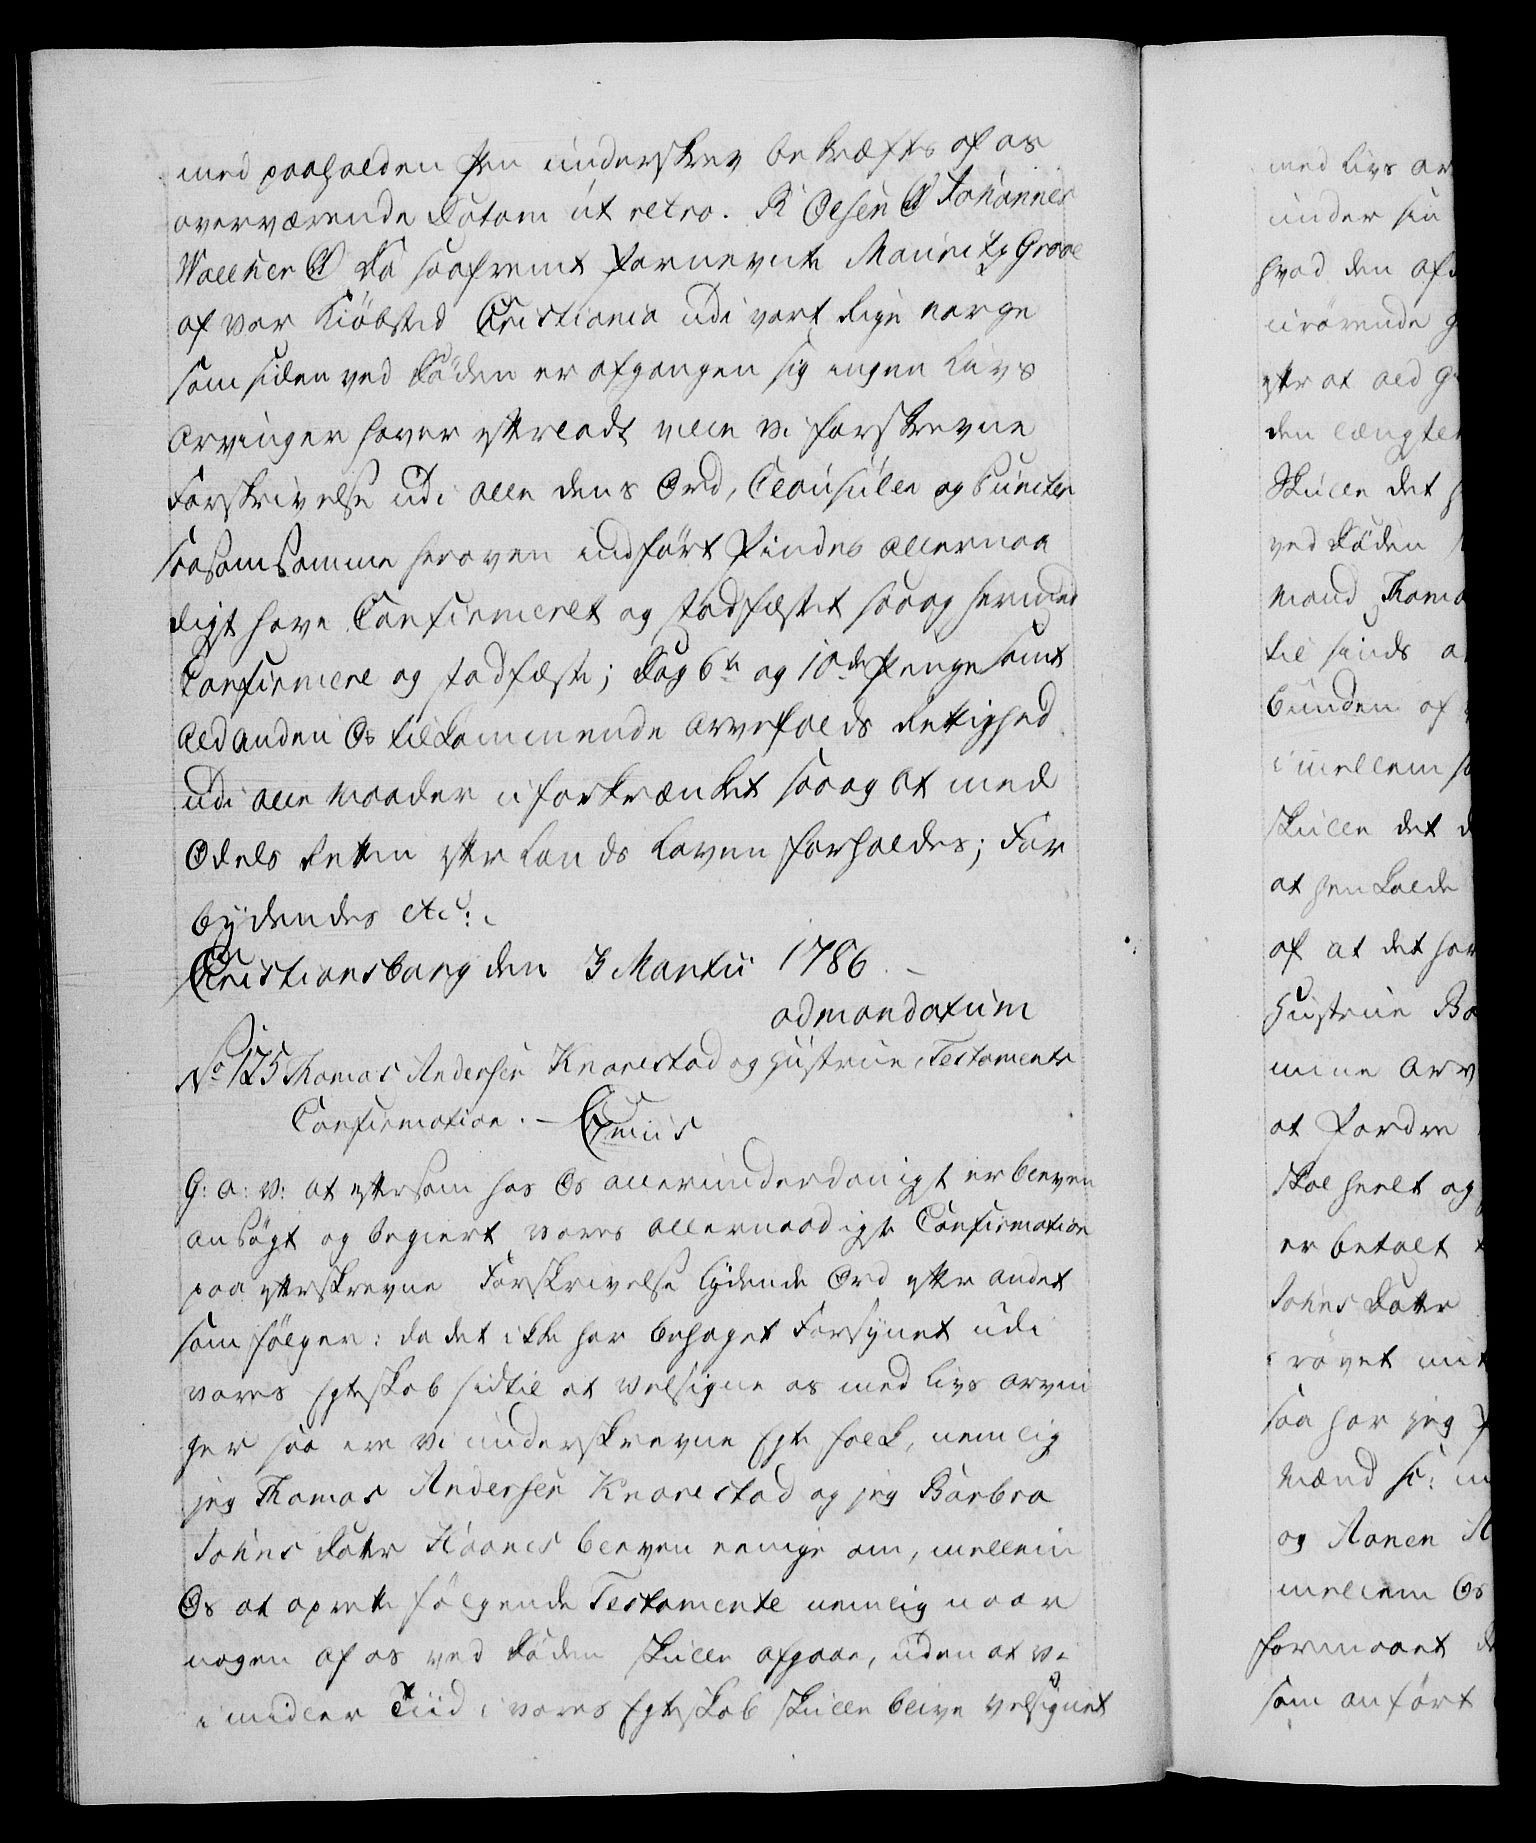 med paaholden Pen underskrev bekræftes af os
overværende Datam ut retro. R Olsen (LS) Johannes
Walcker (LS) Da saafremt fornevnte Mauritz Graae
af vor Kiöbsted Cristiania udi vort Rige Norge
som siden ved Döden er afgangen sig ingen Livs
Arvinger haver efterladt ville vi forskrevne
Forskrivelse udi alle dens Ord, Clausuller og Puncter
saasom samme heroven indfört findes allernaa
digst have Confirmeret og stadfæstet saa og hermed
Confirmere og stadfæste; dog 6te og 10de Penge samt
ald anden Os tilkommende Arvefalds Rettighed
udi alle Maader uforkrænket saa og at med
Odels Retten efter Lands Loven forholdes; For
bydendes etc:
Cristiansborg den 3 Martii 1786. –
ad mandatum
No 125 Thomas Andersen Knarestad og Hustrue, Testaments
Confirmation. – Gratis
G: a: v: at eftersom hos Os allerunderdanigst er bleven
ansögt og begiert vores allernaadigste Confirmation
paa efterskrevne Forskrivelse lydende Ord efter andet
som fölger: da det ikke har behaget Forsynet udi
vores Egteskab hidtil at velsigne os med Livs Arvin
ger saa ere vi underskrevne Egte Folck, nemlig
jeg Thomas Andersen Knarestad og jeg Barbra
Johns Datter bleven eenige om, mellem
Os at oprette fölgende Testamente nemlig naar
nogen af os ved Döden skulle afgaae, uden at vi
imidler Tiid i vores Egteskab skulle blive velsignet
med Livs ar
under sin
hvad den af
urörende
efter at ald
den længst
Skulle det
ved Döden
Mand Thoma
til sinds
bunden af
imellem
skulle det
at henkalde
af at det har
Hustrue Ba
mine Arv
at fordre
skal heelt og
er betalt
Johns Datter
rövet mit
saa har jeg
Mænd
og Aanen
mellem Os
formaaet
som anfört